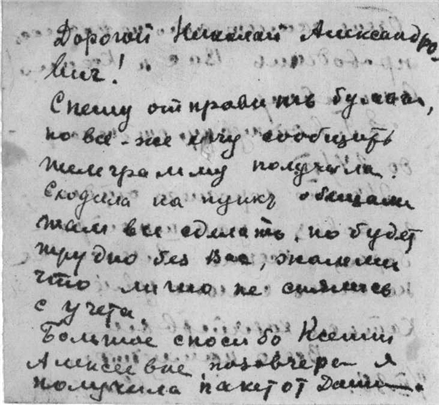 Дорогой Николай Александро-
вич!
Спешу отправить бумаги,
но все-же хочу сообщить
телеграмму получила.
Сходила на пункт обещали
там все сделать, но будет
трудно без Вас,
что лично не снялись
с учета.
Большое спасибо Ксении
Алексеевне позавчера я
получила пакет от Даши.